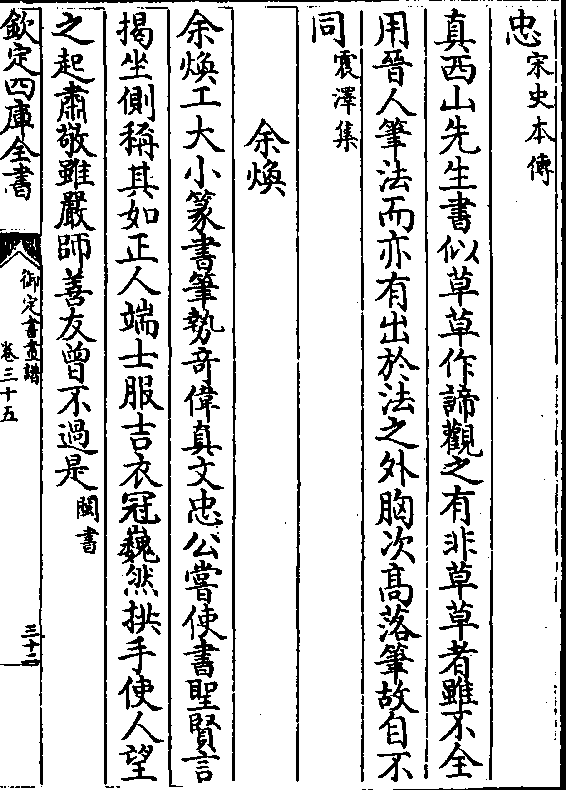 忠宋史本傳
真西山先生書似草草作諦觀之有非草草者雖不全
用晉人筆法而亦有出於法之外胸次髙落筆故自不
同震澤集
余煥
余煥工大小篆書筆勢竒偉真文忠公嘗使書聖賢言
揭坐側稱其如正人端士服吉衣冠巍然拱手使人望
之起肅敬雖嚴師善友曾不過是閩書
欽定四庫全書
御定書畫譜
卷三十五
三十二